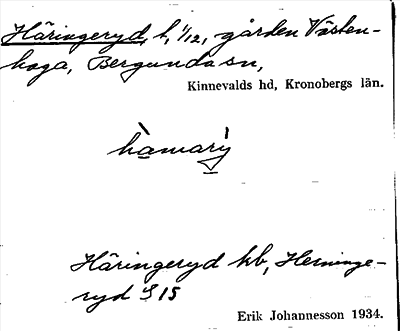 Häringeryd, l, 1/12, gården Västen-
haga, Bergunda sn,
Kinnevalds hd, Kronobergs län.
Häringeryd hb, Herringe-
ryd S 15
Erik Johannesson 1934.